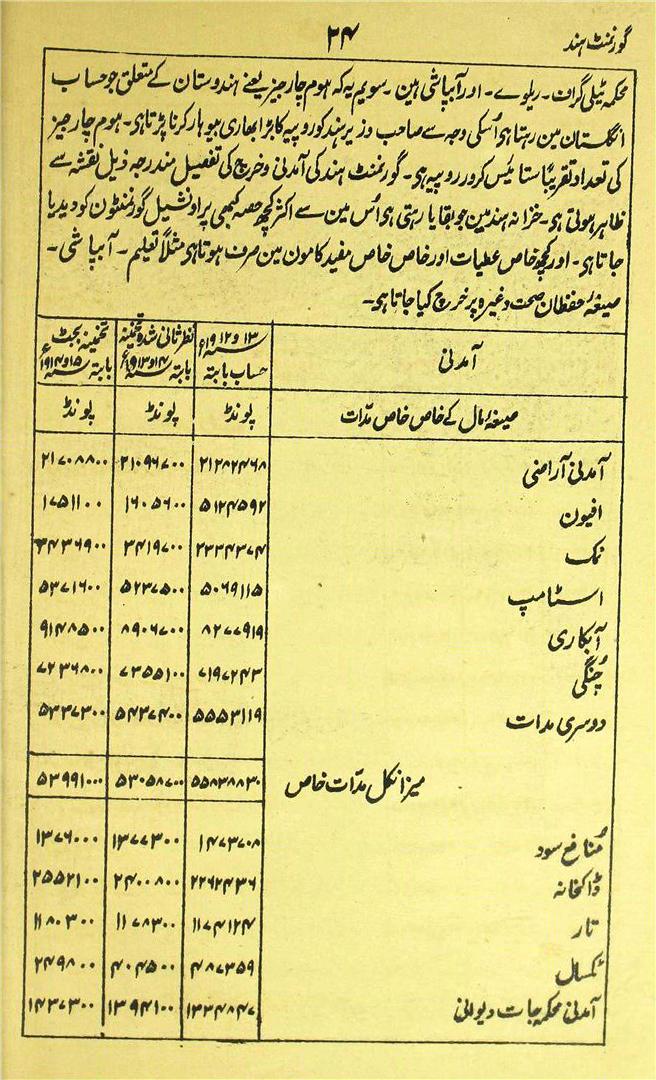 گورنمنٹ ہند ۲۴
محکمہ ٹیلی گراف ۔ ریلوے ۔ اور آبپاشی ہین ۔ سویم یہ کہ ہوم چارجیز یعنے ہندوستان کے متعلق جو حساب
انگلستان مین رہتا ہی اُسکی وجہ سے صاحب وزیر ہند کو روپیہ کا بڑا بھاری بیوہار کرنا پڑتا ہی ۔ ہوم چارجیز
کی تعداد تقریباً ستائیس کرور روپیہ ہی ۔ گورنمنٹ ہند کی آمدنی و خرچ کی تفصیل مندرجہ ذیل نقشہ سے
ظاہر ہوتی ہو ۔ خزانہ ہند مین جو بقایا رہتی ہو اُس مین سے اکثر کچھ حصہ کبھی پراونشیل گورنمنٹون کو دیدیا
جاتا ہی ۔ اور کچھ خاص عطیات اور خاص خاص مفید کامون مین صرف ہوتا ہی مثلاً تعلیم ۔ آبپاشی ۔
صیغۂ حفظان صحت وغیرہ پر خرچ کیا جاتا ہی ۔
آمدنی | حساب بابتہ سنہ ۱۳ و ۱۹۱۲ء | نظر ثانی شدہ تخمینہ بابتہ سنہ ۱۴ و ۱۹۱۳ء | تخمینہ بجٹ بابتہ سنہ ۱۵ و ۱۹۱۴ء
صیغۂ مال کے خاص خاص مدّات | پونڈ | پونڈ | پونڈ
آمدنی آراضی | ۲۱۲۸۲۴۶۸ | ۲۱۰۹۶۷۰۰ | ۲۱۷۰۸۸۰۰
افیون | ۵۱۲۴۵۹۲ | ۱۶۰۵۶۰۰ | ۱۷۵۱۱۰۰
نمک | ۳۳۳۴۳۷۴ | ۳۴۱۹۷۰۰ | ۳۴۳۶۹۰۰
اسٹامپ | ۵۰۶۹۱۱۵ | ۵۲۳۷۵۰۰ | ۵۳۷۱۶۰۰
آبکاری | ۸۲۷۷۹۱۹ | ۸۹۰۶۷۰۰ | ۹۱۴۸۵۰۰
چُنگی | ۷۱۹۷۲۴۳ | ۷۳۵۵۱۰۰ | ۷۲۳۶۸۰۰
دوسری مدات | ۵۵۵۳۱۱۹ | ۵۴۳۷۴۰۰ | ۵۳۳۷۳۰۰
میزانکل مدّات خاص | ۵۵۸۳۸۸۳۰ | ۵۳۰۵۸۷۰۰ | ۵۳۹۹۱۰۰۰
مُنافع سود | ۱۴۷۳۷۰۸ | ۱۳۷۷۳۰۰ | ۱۳۷۶۰۰۰
ڈاکخانہ | ۲۲۶۲۴۳۶ | ۲۴۰۰۸۰۰ | ۲۵۵۲۱۰۰
تار | ۱۱۷۴۱۲۴ | ۱۱۷۸۳۰۰ | ۱۱۸۰۳۰۰
ٹکسال | ۴۸۷۳۵۹ | ۴۰۴۵۰۰ | ۲۴۹۸۰۰
آمدنی محکمہ جات دیوانی | ۱۳۳۴۸۴۷ | ۱۳۹۴۱۰۰ | ۱۴۳۷۳۰۰